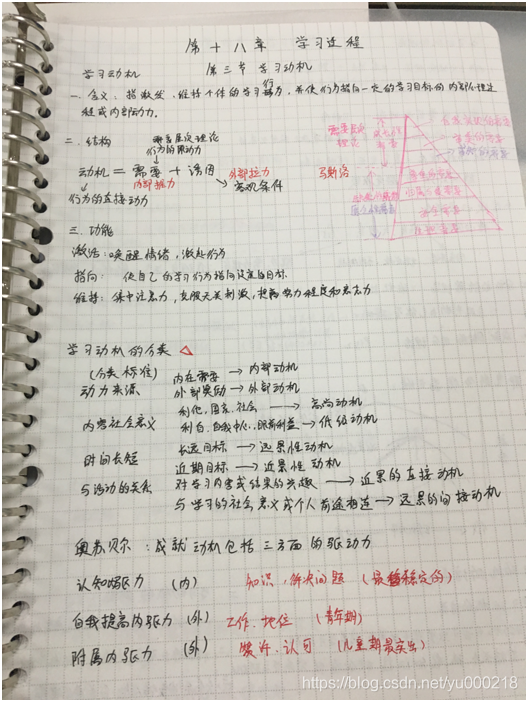 第十八章 学习过程
学习动机 第三节 学习动机
一、含义：指激发、维持个体的学习行为，并使行为指向一定的学习目标的内部心理过程或内部动力。
二、结构
需要层次理论
行为的原动力
动机 = 需要 + 诱因
内部推力
外部拉力
客观条件
行为的直接动力
马斯洛
需要层次理论
三、功能
激活：唤醒情绪，激起行为
指向：使自己的学习行为指向设定的目标
维持：集中注意力，克服无关刺激，提高努力程度和意志力
学习动机的分类 △
(分类标准)
动力来源
内在需要 → 内部动机
外部奖励 → 外部动机
内容社会意义
利他、国家、社会 → 高尚动机
利自、自我中心、眼前利益 → 低级动机
时间长短
长远目标 → 远景性动机
近期目标 → 近景性动机
与活动的关系
对学习内容或结果的兴趣 → 近景的直接动机
与学习的社会意义或个人前途相连 → 远景的间接动机
奥苏贝尔：成就动机包括三方面的驱动力
认知内驱力 (内) 知识，解决问题 (最稳定的)
自我提高内驱力 (外) 工作、地位 (青年期)
附属内驱力 (外) 赞许、认可 (儿童期最突出)
https://blog.csdn.net/yu000218